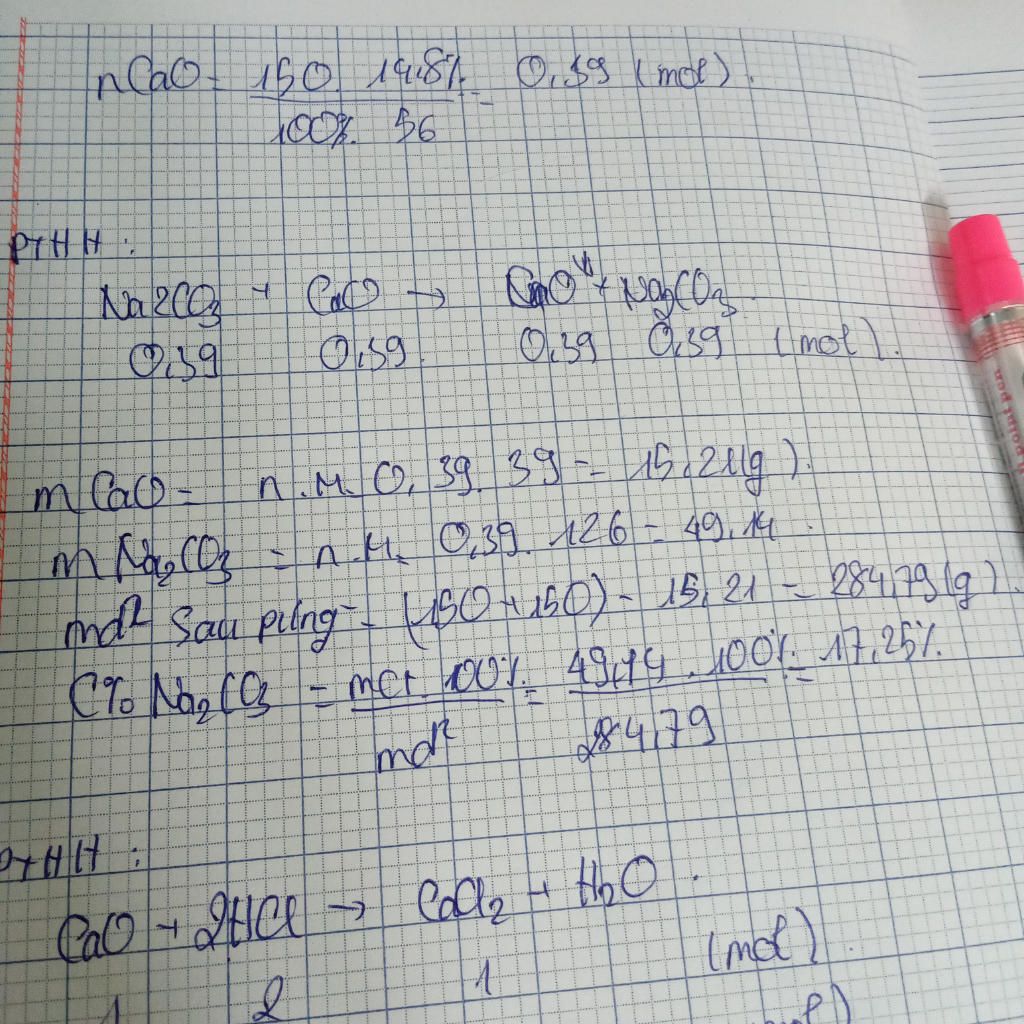 nCaO = 150. 14,8% = 0,39 (mol).
100%. 56
PTHH :
Na2CO3 + CaO → CaO↓ + Na2CO3.
0,39 0,39 0,39 0,39 (mol).
mCaO = n.M. 0,39. 39 = 15,21(g).
mNa2CO3 = n.M. 0,39. 126 = 49,14.
md² sau pứng = (150+150) - 15,21 = 284,79(g).
C% Na2CO3 = mct. 100% = 49,14 . 100% = 17,25%.
md² 284,79
PTHH :
CaO + 2HCl → CaCl2 + H2O .
1 2 1 (mol).